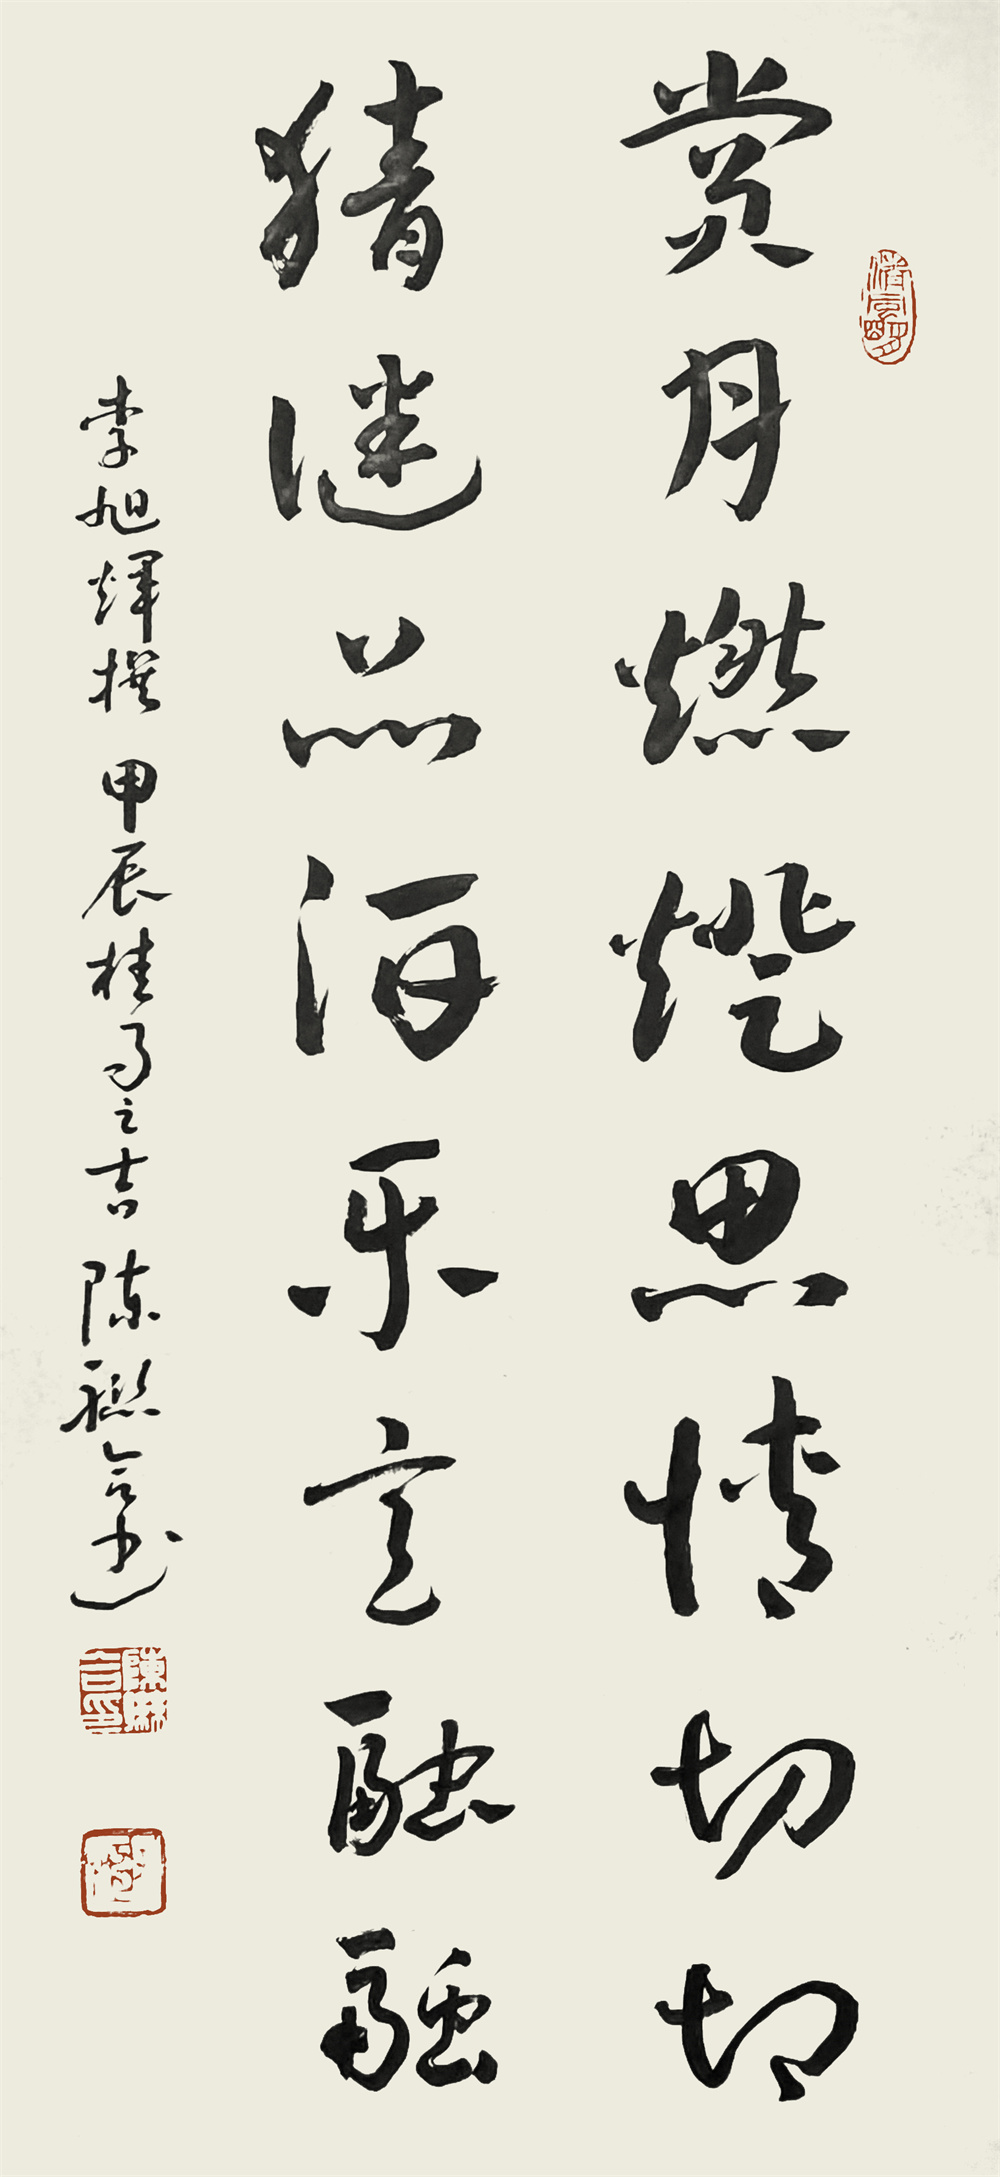 赏月燃灯思情切切
猜谜品酒乐意融融
李旭辉撰 甲辰桂月之吉 陈联合书